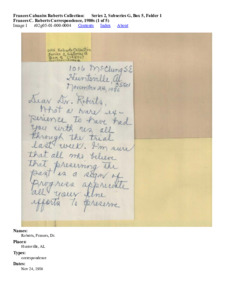 Frances Cabaniss Roberts Collection: Series 2, Subseries G, Box 5, Folder 1
Frances C. Roberts Correspondence, 1980s (1 of 1)
Image 1 Contents Index About
1016 McClung SE
Huntsville, Al
November 24,
Dear Dr. Roberts,
What a rare ex-
perience to have had
you with us all
through the trial
last week. I'm sure
that all who believe
that preserving the
past is a sign of
progress appreciate
all your fine
efforts to preserve
Names:
Roberts, Frances, Dr.
Places:
Huntsville, AL
Types:
correspondence
Dates:
Nov 24,